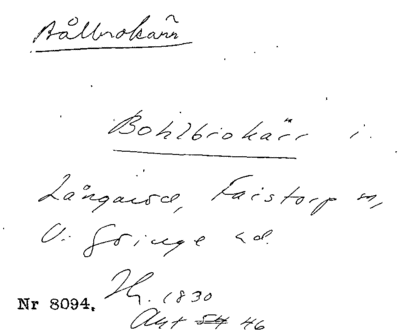 Bålbrokärr
Bohlbrokärr i
Långaröd, Faistorp m,
V: Göinge hd.
Hr. 1830
Nr 8094. Akt 54 46